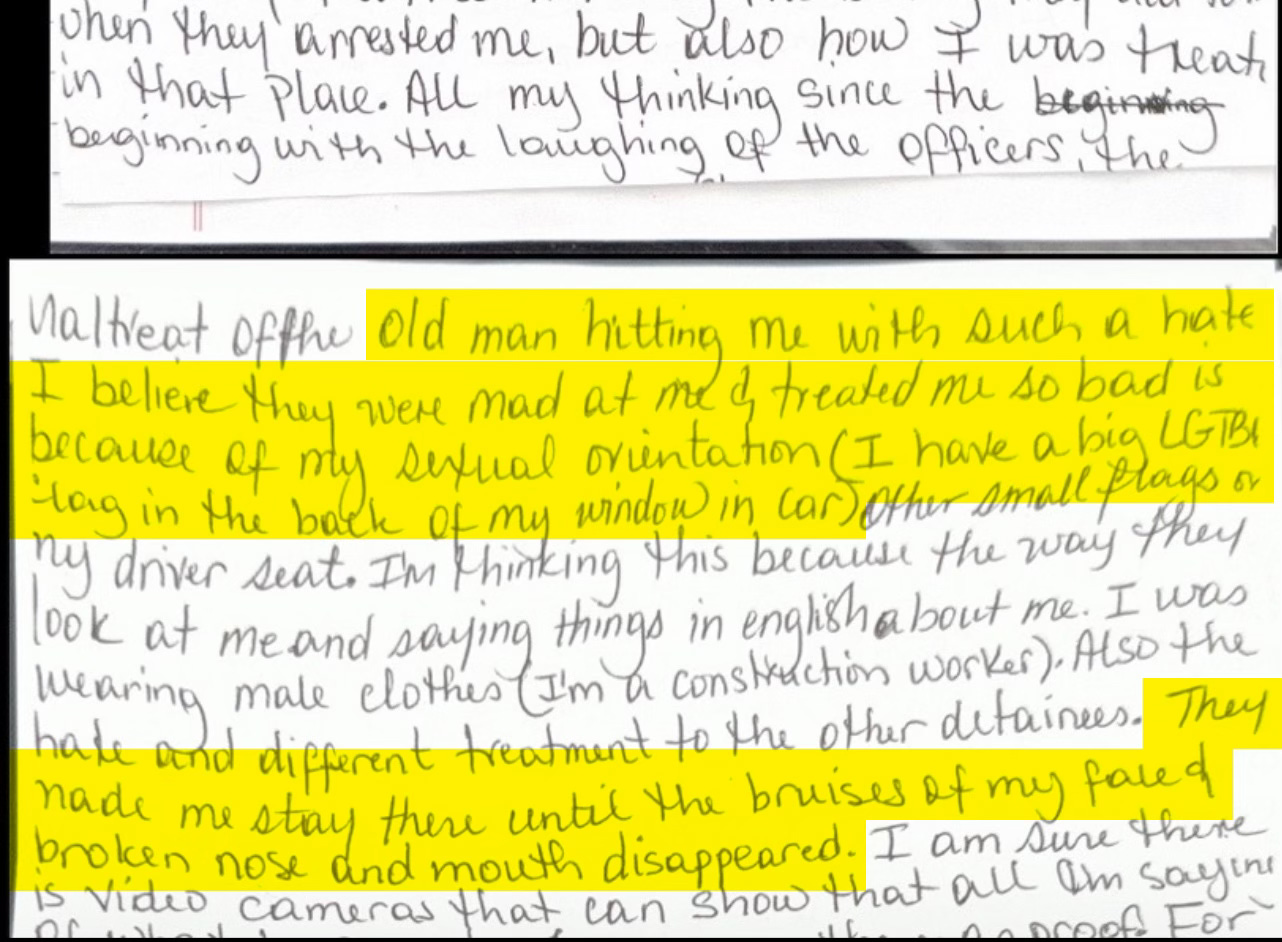 when they arrested me, but also how I was treat
in that place. All my thinking since the beginning
beginning with the laughing of the officers, the
Maltreat of the old man hitting me with such a hate
I believe they were mad at me & treated me so bad is
because of my sexual orientation (I have a big LGTB
flag in the back of my window in car) other small flags on
my driver seat. I'm thinking this because the way they
look at me and saying things in english about me. I was
wearing male clothes (I'm a construction worker). Also the
hate and different treatment to the other detainees. They
made me stay there until the bruises of my face &
broken nose and mouth disappeared. I am sure there
is video cameras that can show that all Im saying
proof. For